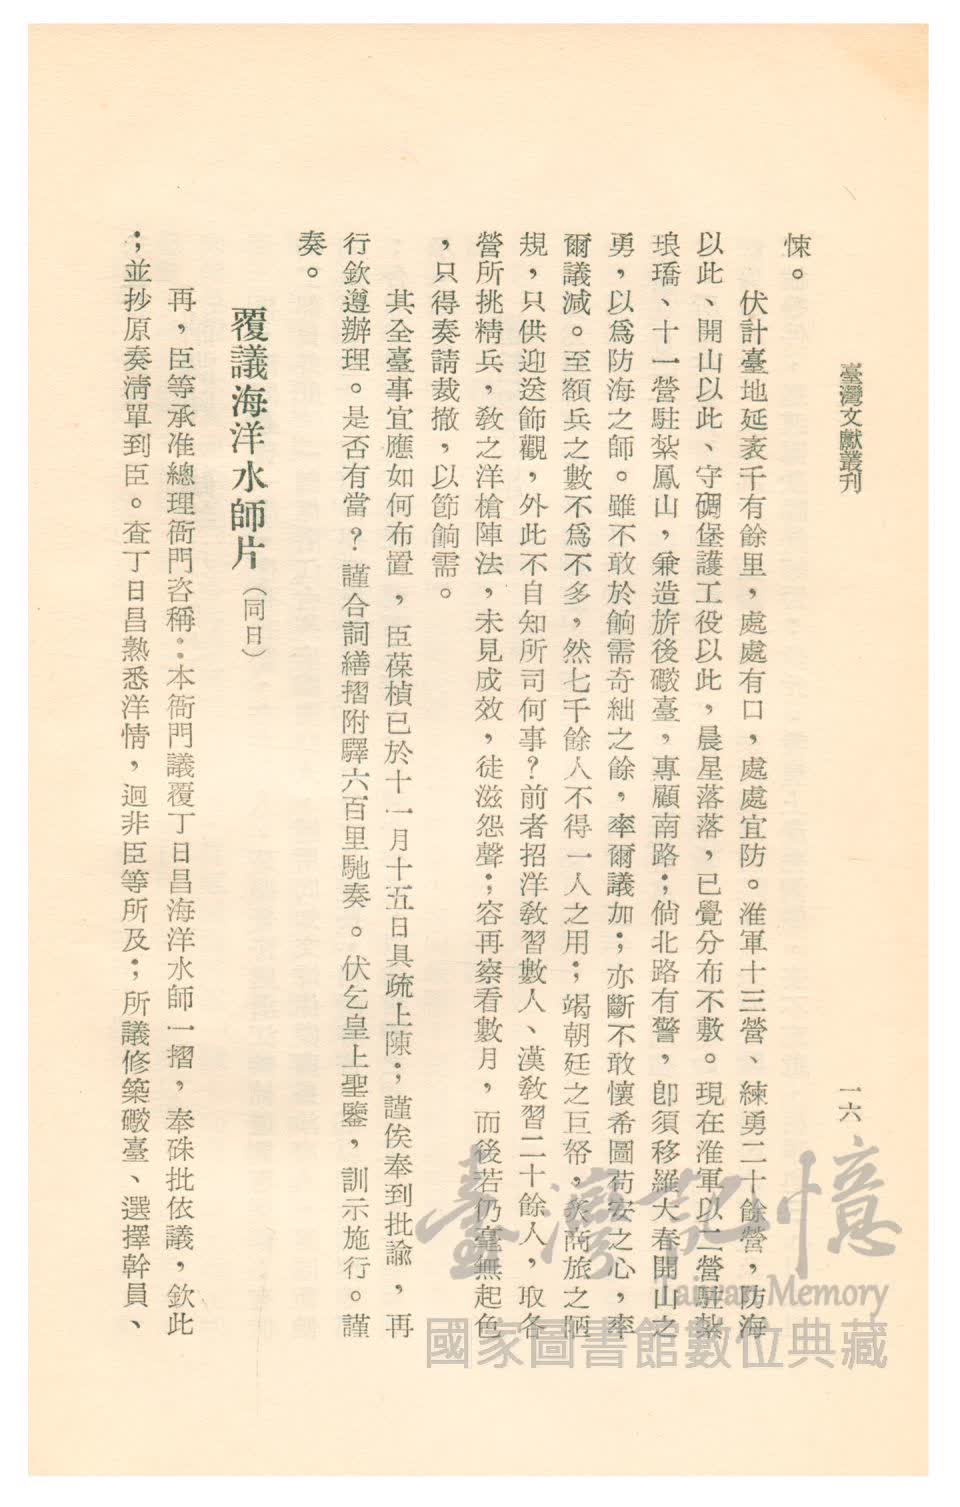 臺灣文獻叢刊
一六
悚。
伏計臺地延袤千有餘里，處處有口，處處宜防。淮軍十三營、練勇二十餘營，防海
以此、開山以此、守碉堡護工役以此，晨星落落，已覺分布不敷。現在淮軍以二營駐紮
琅𤩝、十一營駐紮鳳山，兼造旂後礮臺，專顧南路；倘北路有警，卽須移羅大春開山之
勇，以爲防海之師。雖不敢於餉需奇絀之餘，率爾議加；亦斷不敢懷希圖苟安之心，率
爾議減。至額兵之數不爲不多，然七千餘人不得一人之用；竭朝廷之巨帑，養商旅之陋
規，只供迎送飾觀，外此不自知所司何事？前者招洋敎習數人、漢敎習二十餘人，取各
營所挑精兵，敎之洋槍陣法，未見成效，徒滋怨聲；容再察看數月，而後若仍毫無起色
，只得奏請裁撤，以節餉需。
其全臺事宜應如何布置，臣葆楨已於十一月十五日具疏上陳；謹俟奉到批諭，再
行欽遵辦理。是否有當？謹合詞繕摺附驛六百里馳奏。伏乞皇上聖鑒，訓示施行。謹
奏。
覆議海洋水師片（同日）
再，臣等承准總理衙門咨稱：本衙門議覆丁日昌海洋水師一摺，奉硃批依議，欽此
；並抄原奏淸單到臣。查丁日昌熟悉洋情，迥非臣等所及；所議修築礮臺、選擇幹員、
臺灣記憶
Taiwan Memory
國家圖書館數位典藏